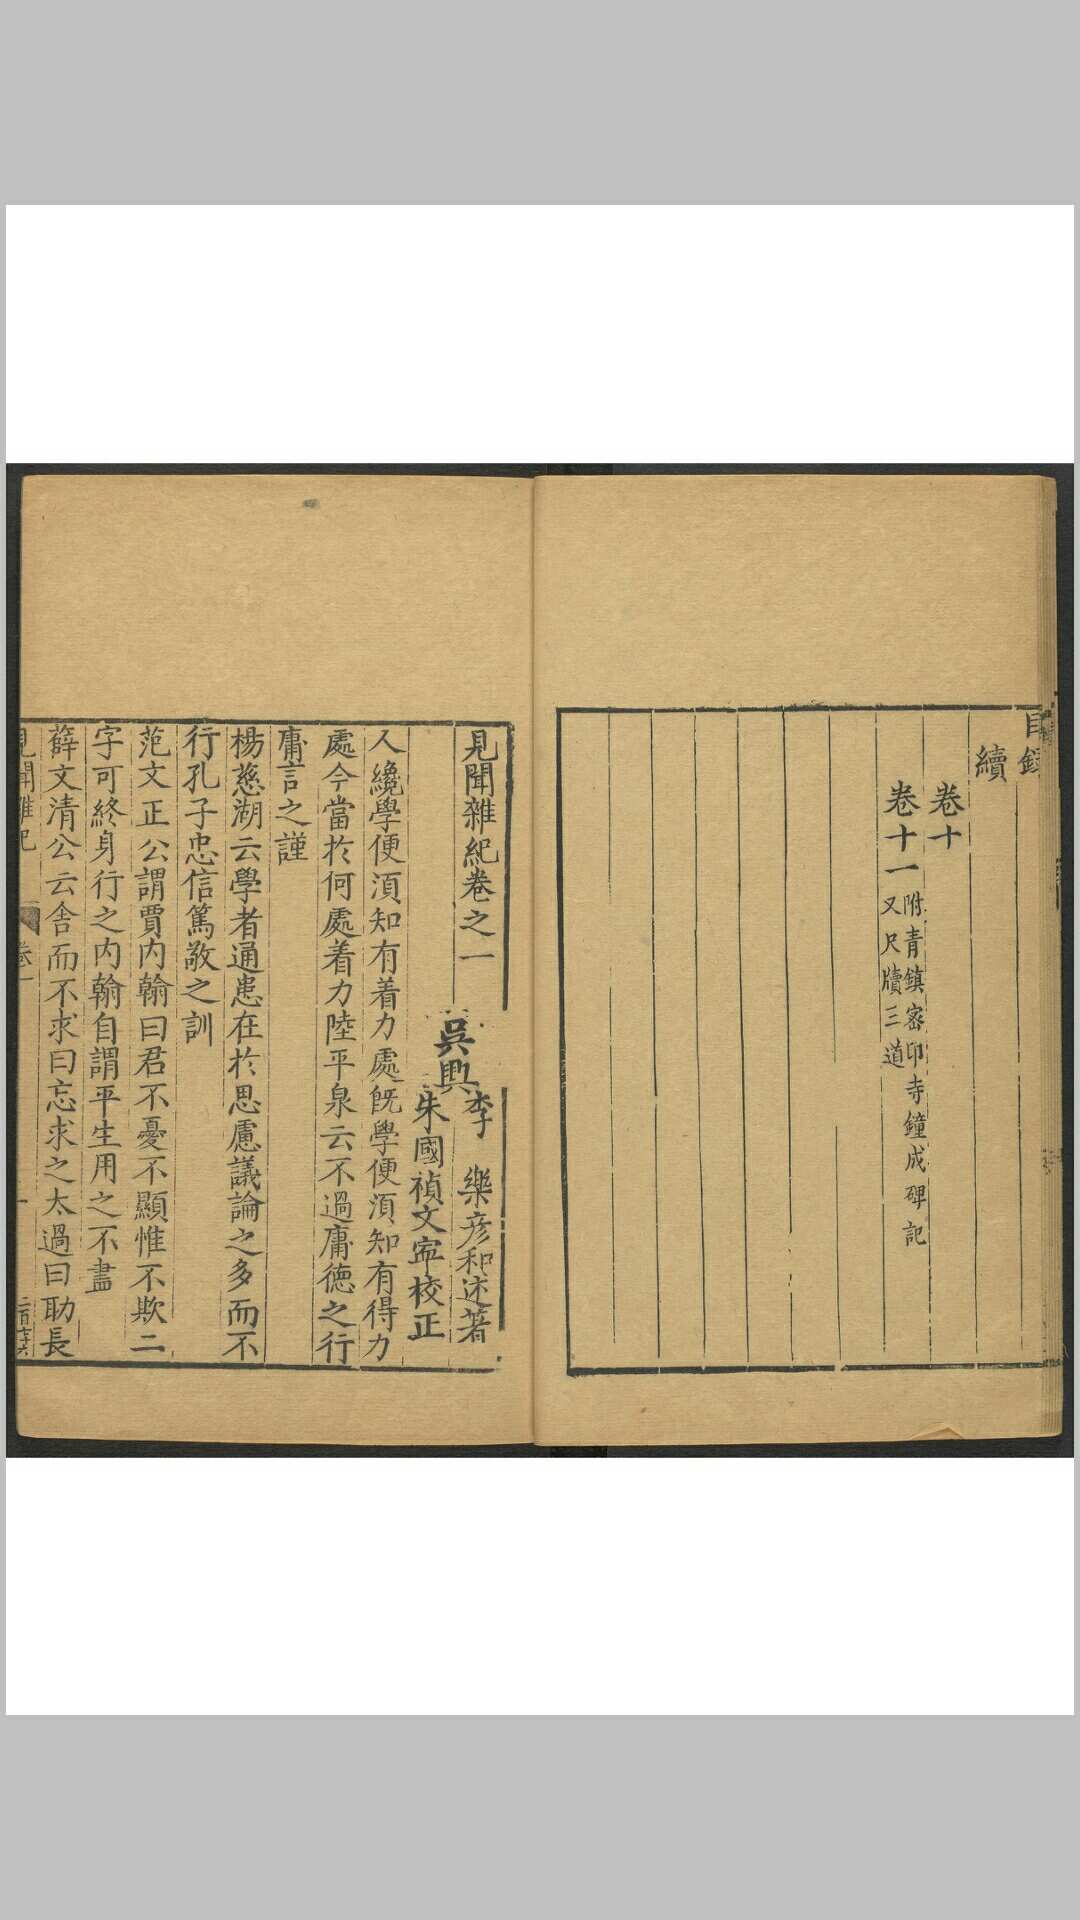 目錄
續
卷十
卷十一
附青鎮密印寺鐘成碑記
又尺牘三道
見聞雜紀卷之一
吳興
李樂彦和述著
朱國禎文寧校正
人纔學便須知有着力處既學便須知有得力
處今當於何處着力陸平泉云不過庸德之行
庸言之謹
楊慈湖云學者通患在於思慮議論之多而不
行孔子忠信篤敬之訓
范文正公謂賈内翰曰君不憂不顯惟不欺二
字可終身行之内翰自謂平生用之不盡
薛文清公云舍而不求曰忘求之太過曰助長
見聞雜紀
卷一
一